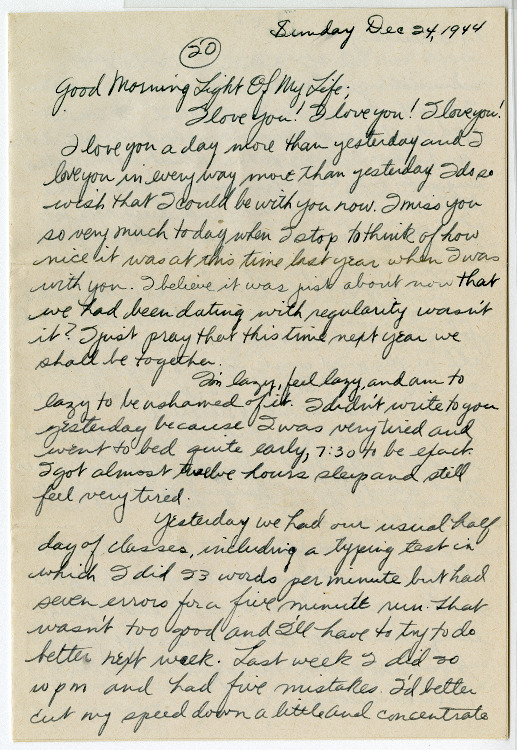 Sunday Dec 24, 1944
20
Good Morning Light Of My Life;
I love you! I love you! I love you!
I love you a day more than yesterday and I
love you in every way more than yesterday I do so
wish that I could be with you now. I miss you
so very much today when I stop to think of how
nice it was at this time last year when I was
with you. I believe it was just about now that
we had been dating with regularity wasn't
it? I just pray that this time next year we
shall be together.
I'm lazy, feel lazy, and am to
lazy to be ashamed of it. I didn't write to you
yesterday because I was very tired and
went to bed quite early, 7:30 to be exact.
I got almost twelve hours sleep and still
feel very tired.
Yesterday we had our usual half
day of classes, including a typing test in
which I did 23 words per minute but had
seven errors for a five minute run. That
wasn't too good and I'll have to try to do
better next week. Last week I did 20
w p m and had five mistakes. I'd better
cut my speed down a little and concentrate